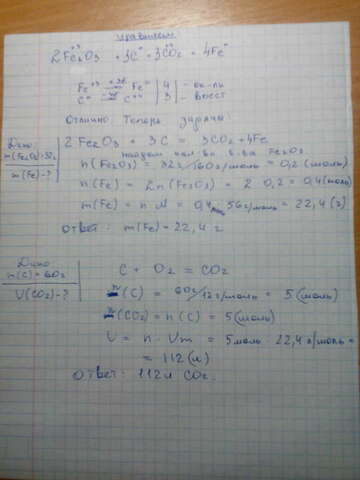 уравняем
2Fe₂⁺³O₃ + 3C⁰ = 3C⁺⁴O₂ + 4Fe⁰
Fe⁺³ +3e → Fe⁰ | 4 | - ок-ль
C⁰ → C⁺⁴ | 3 | - восст
Отлично. Теперь задачи:
Дано:
m(Fe₂O₃) = 32г
m(Fe) - ?
2 Fe₂O₃ + 3C = 3CO₂ + 4Fe
найдем кол-во в-ва Fe₂O₃
n(Fe₂O₃) = 32г/160г/моль = 0,2 (моль)
n(Fe) = 2n(Fe₂O₃) = 2 · 0,2 = 0,4 (моль)
m(Fe) = n · M = 0,4 · 56 г/моль = 22,4 (г)
Ответ: m(Fe) = 22,4 г
Дано:
m(C) = 60г
V(CO₂) - ?
C + O₂ = CO₂
n(C) = 60г/12г/моль = 5 (моль)
n(CO₂) = n(C) = 5 (моль)
V = n · Vm = 5 моль · 22,4 л/моль =
= 112 (л)
Ответ: 112 л CO₂.